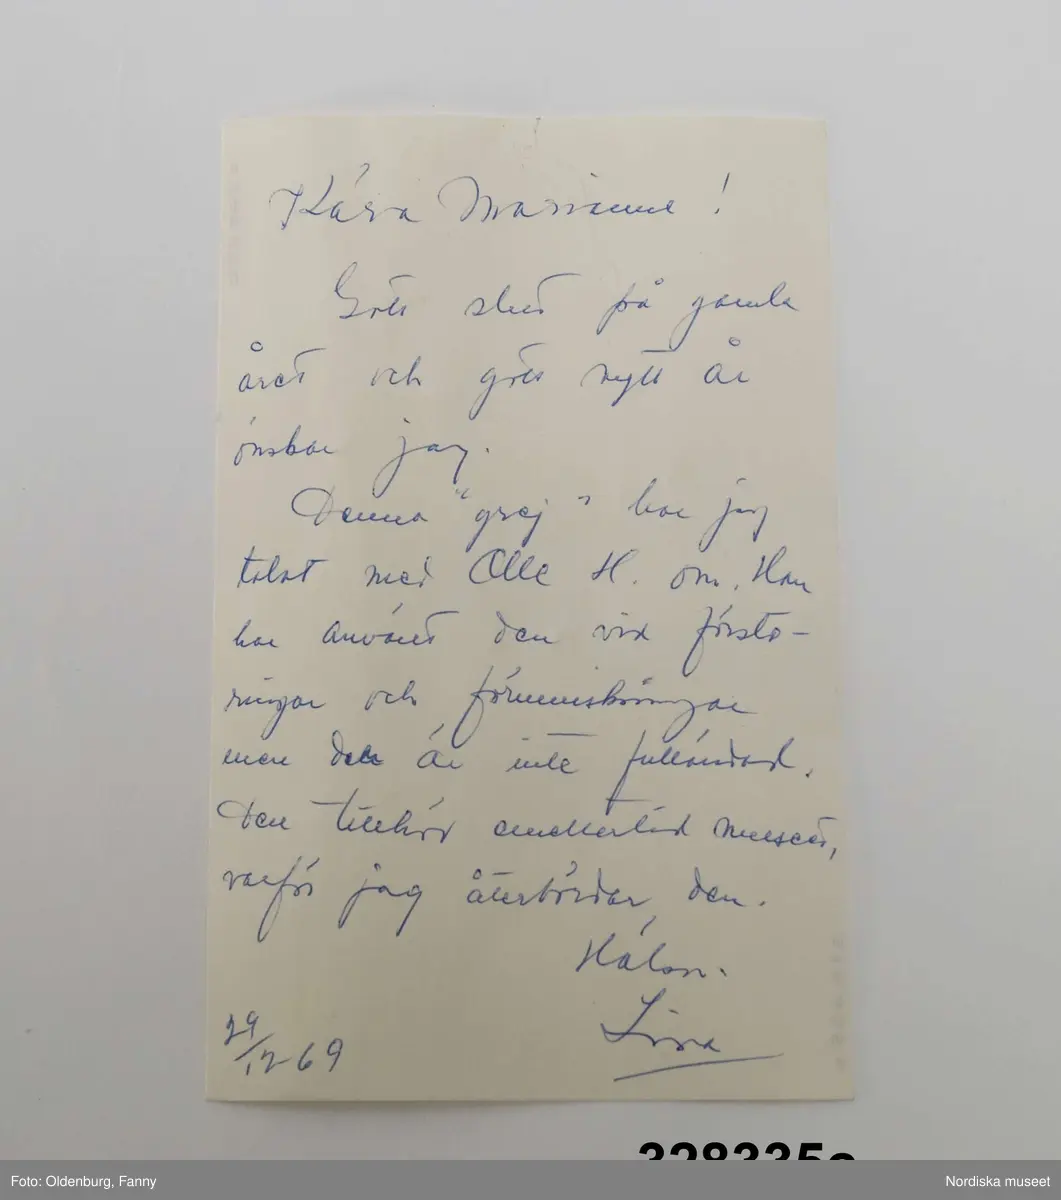 Kära Marianne!
Gott slut på gamla
året och gott nytt år
önskar jag.
Denna "grej" har jag
talat med Olle H. om. Han
har använt den vid försto-
ringar och förminskningar
men den är inte fulländad.
Den tillhör emellertid museet,
varför jag återbördar den.
Hälsn.
29/12 69
328335c
Foto: Oldenburg, Fanny
Nordiska museet